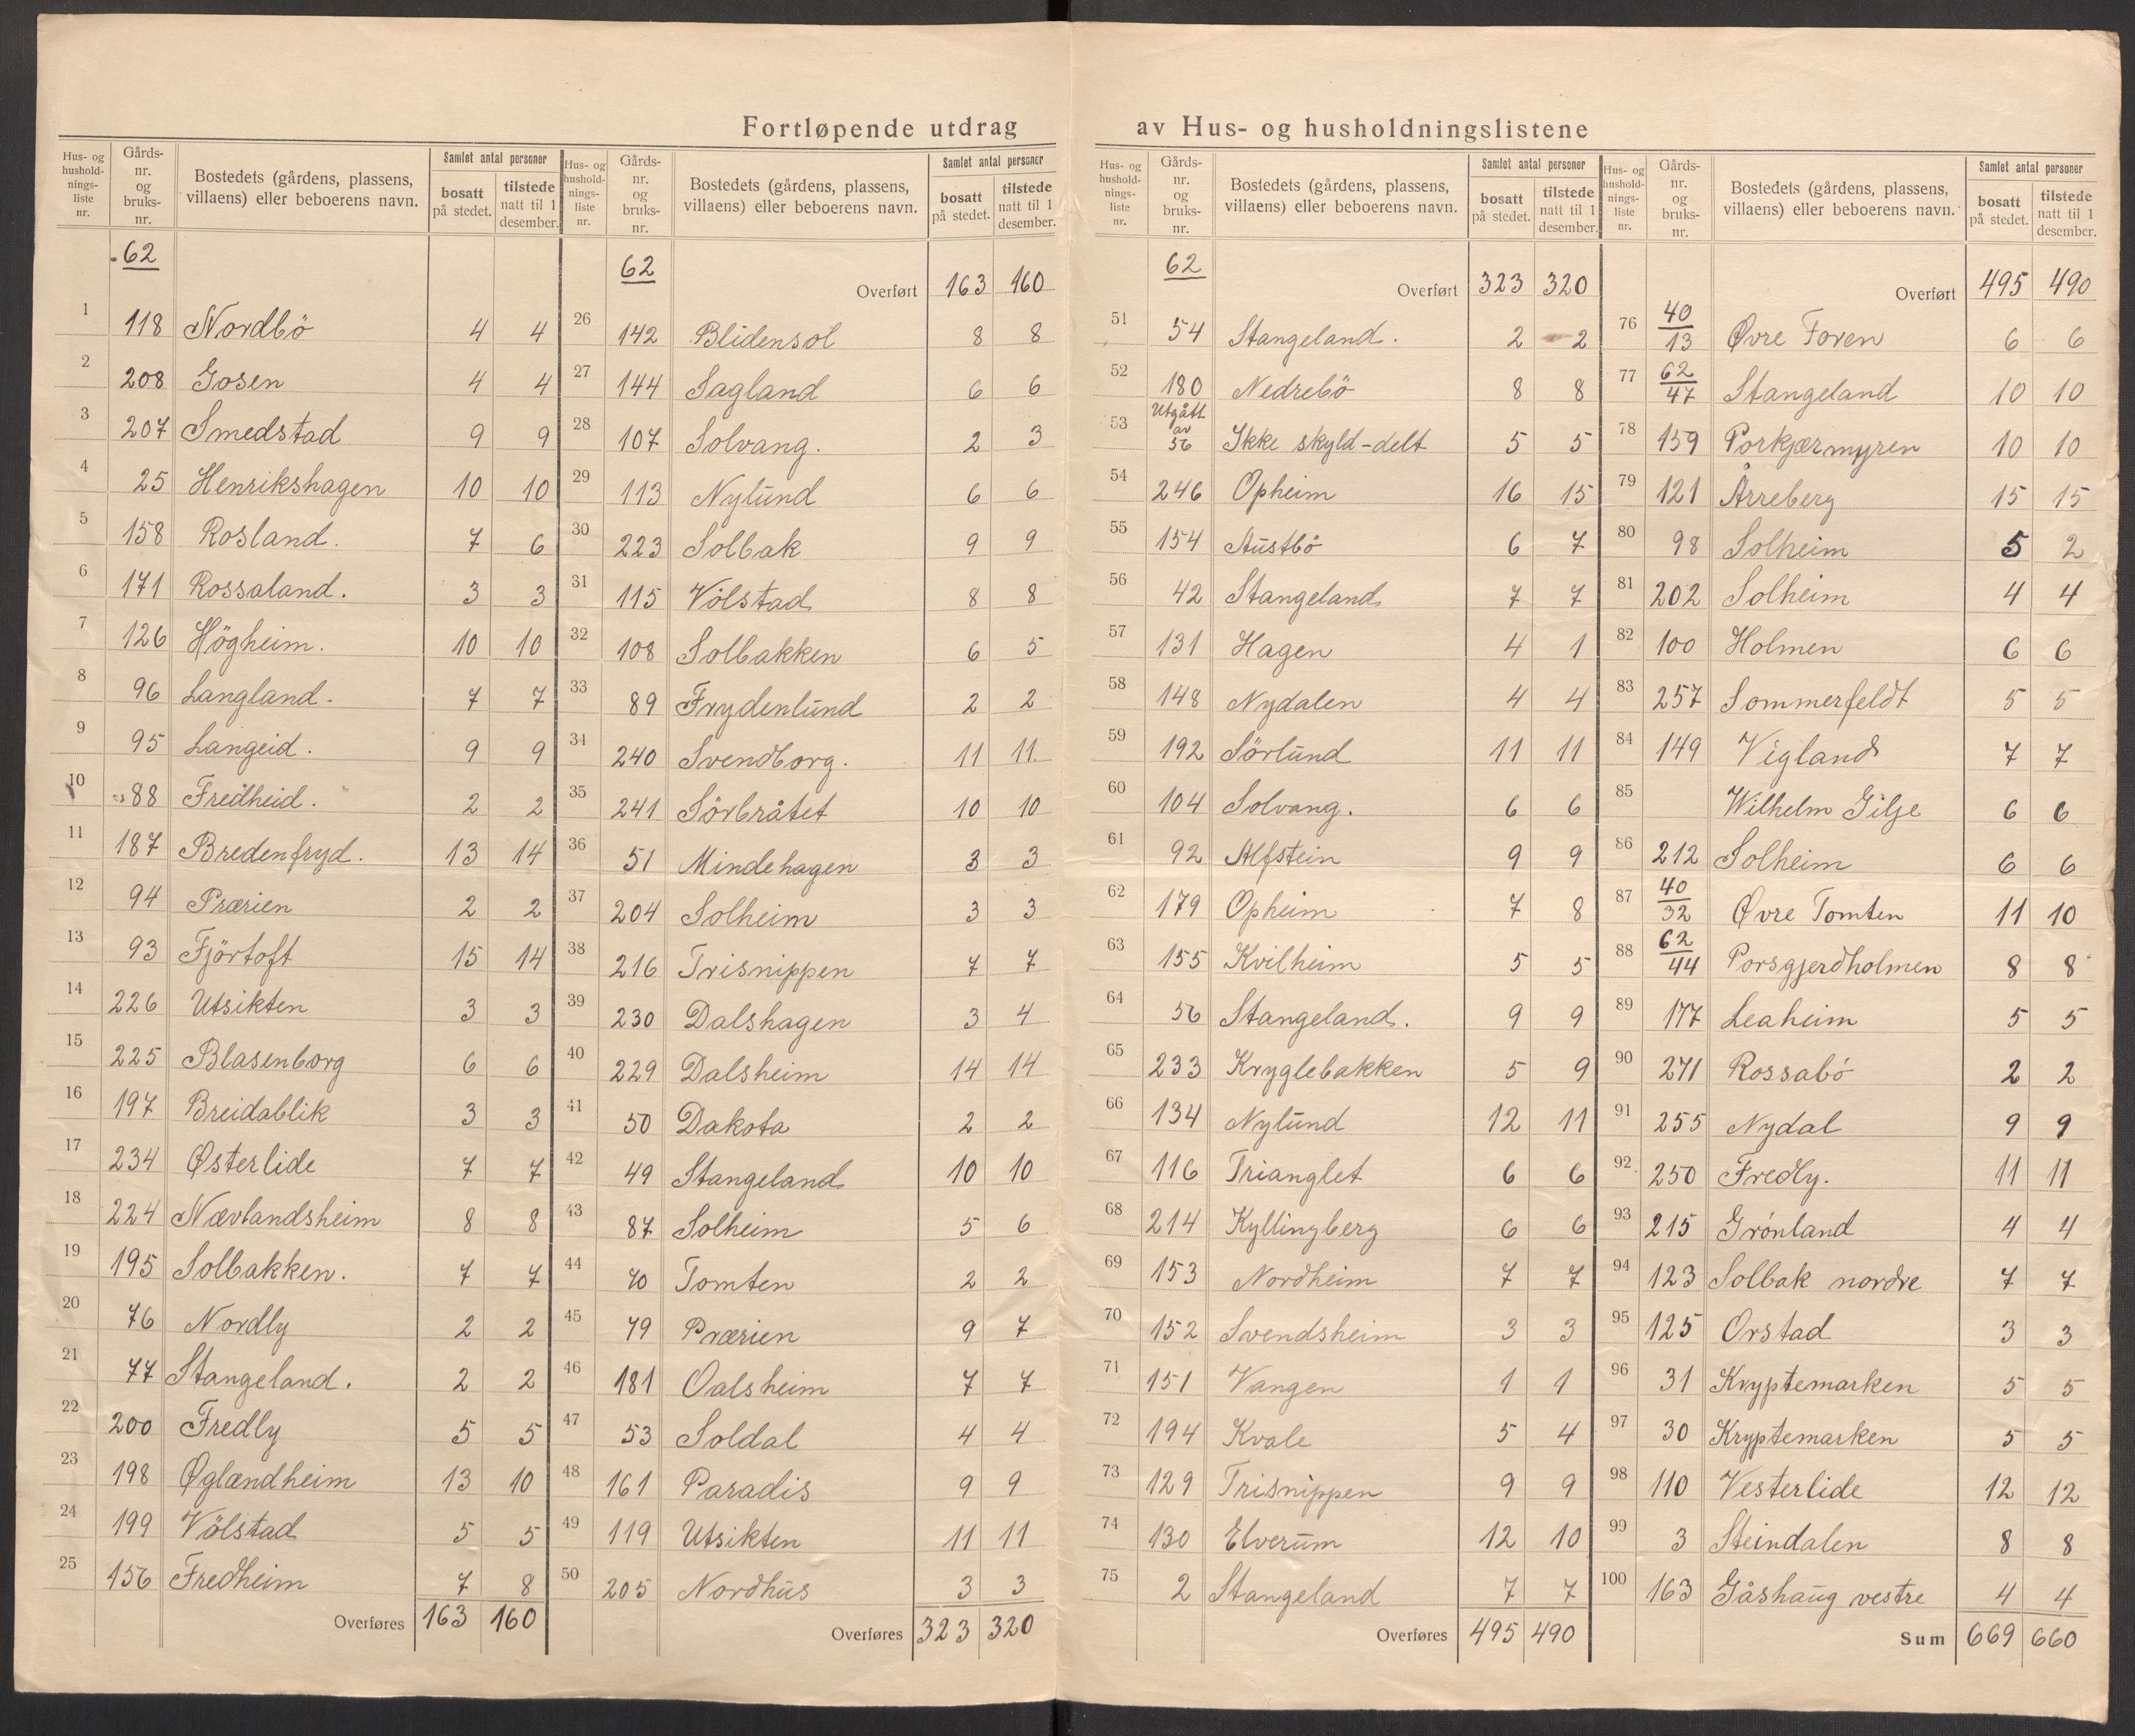 Fortløpende utdrag av Hus- og husholdningslistene
Hus- og husholdningsliste nr. | Gårdsnr. og bruksnr. | Bostedets (gårdens, plassens, villaens) eller beboerens navn. | Samlet antal personer: bosatt på stedet. | tilstede natt til 1 desember.
62
1 118 Nordbö 4 4
2 208 Gosen 4 4
3 207 Smedstad 9 9
4 25 Henrikshagen 10 10
5 158 Rosland. 7 6
6 171 Rossaland. 3 3
7 126 Högheim. 10 10
8 96 Langland. 7 7
9 95 Langeid. 9 9
10 88 Fredheid. 2 2
11 187 Bredenfryd. 13 14
12 94 Prærien 2 2
13 93 Fjörtoft 15 14
14 226 Utsikten 3 3
15 225 Blasenborg 6 6
16 197 Breidablik 3 3
17 234 Østerlide 7 7
18 224 Nævlandsheim 8 8
19 195 Solbakken. 7 7
20 76 Nordly 2 2
21 77 Stangeland. 2 2
22 200 Fredly 5 5
23 198 Øglændheim 13 10
24 199 Völstad 5 5
25 156 Fredheim 7 8
Overføres 163 160
Hus- og husholdningsliste nr. | Gårdsnr. og bruksnr. | Bostedets (gårdens, plassens, villaens) eller beboerens navn. | Samlet antal personer: bosatt på stedet. | tilstede natt til 1 desember.
62 Overført 163 160
26 142 Blidensol 8 8
27 144 Sagland 6 6
28 107 Solvang. 2 3
29 113 Nylund 6 6
30 223 Solbak 9 9
31 115 Völstad 8 8
32 108 Solbakken 6 5
33 89 Frydenlund 2 2
34 240 Svendborg. 11 11
35 241 Sörbråtet 10 10
36 51 Mindehagen 3 3
37 204 Solheim 3 3
38 216 Trisnippen 7 7
39 230 Dalshagen 3 4
40 229 Dalsheim 14 14
41 50 Dakota 2 2
42 49 Stangeland 10 10
43 87 Solheim 5 6
44 70 Tomten 2 2
45 79 Prærien 9 7
46 181 Oalsheim 7 7
47 53 Soldal 4 4
48 161 Paradis 9 9
49 119 Utsikten 11 11
50 205 Nordhus 3 3
Overføres 323 320
Hus- og husholdningsliste nr. | Gårdsnr. og bruksnr. | Bostedets (gårdens, plassens, villaens) eller beboerens navn. | Samlet antal personer: bosatt på stedet. | tilstede natt til 1 desember.
62 Overført 323 320
51 54 Stangeland. 2 2
52 180 Nedrebö 8 8
53 Utgått av 56 Ikke skyld-delt 5 5
54 246 Opheim 16 15
55 154 Austbö 6 7
56 42 Stangeland 7 7
57 131 Hagen 4 1
58 148 Nydalen 4 4
59 192 Sörlund 11 11
60 104 Solvang. 6 6
61 92 Alfstein 9 9
62 179 Opheim 7 8
63 155 Kvilheim 5 5
64 56 Stangeland. 9 9
65 233 Kryglebakken 5 9
66 134 Nylund 12 11
67 116 Trianglet 6 6
68 214 Kyllingberg 6 6
69 153 Nordheim 7 7
70 152 Svendsheim 3 3
71 151 Vangen 1 1
72 194 Kvale 5 4
73 129 Trisnippen 9 9
74 130 Elverum 12 10
75 2 Stangeland 7 7
Overføres 495 490
Hus- og husholdningsliste nr. | Gårdsnr. og bruksnr. | Bostedets (gårdens, plassens, villaens) eller beboerens navn. | Samlet antal personer: bosatt på stedet. | tilstede natt til 1 desember.
Overført 495 490
76 40/13 Øvre Foren 6 6
77 62/47 Stangeland 10 10
78 159 Porkjærmyren 10 10
79 121 Årreberg 15 15
80 98 Solheim 5 2
81 202 Solheim 4 4
82 100 Holmen 6 6
83 257 Sommerfeldt 5 5
84 149 Vigland 7 7
85 Wilhelm Gilje 6 6
86 212 Solheim 6 6
87 40/32 Øvre Tomten 11 10
88 62/44 Porsgjerdholmen 8 8
89 177 Leaheim 5 5
90 271 Rossabö 2 2
91 255 Nydal 9 9
92 250 Fredly. 11 11
93 215 Grönland 4 4
94 123 Solbak nordre 7 7
95 125 Orstad 3 3
96 31 Kryptemarken 5 5
97 30 Kryptemarken 5 5
98 110 Vesterlide 12 12
99 3 Steindalen 8 8
100 163 Gåshaug vestre 4 4
Sum 669 660